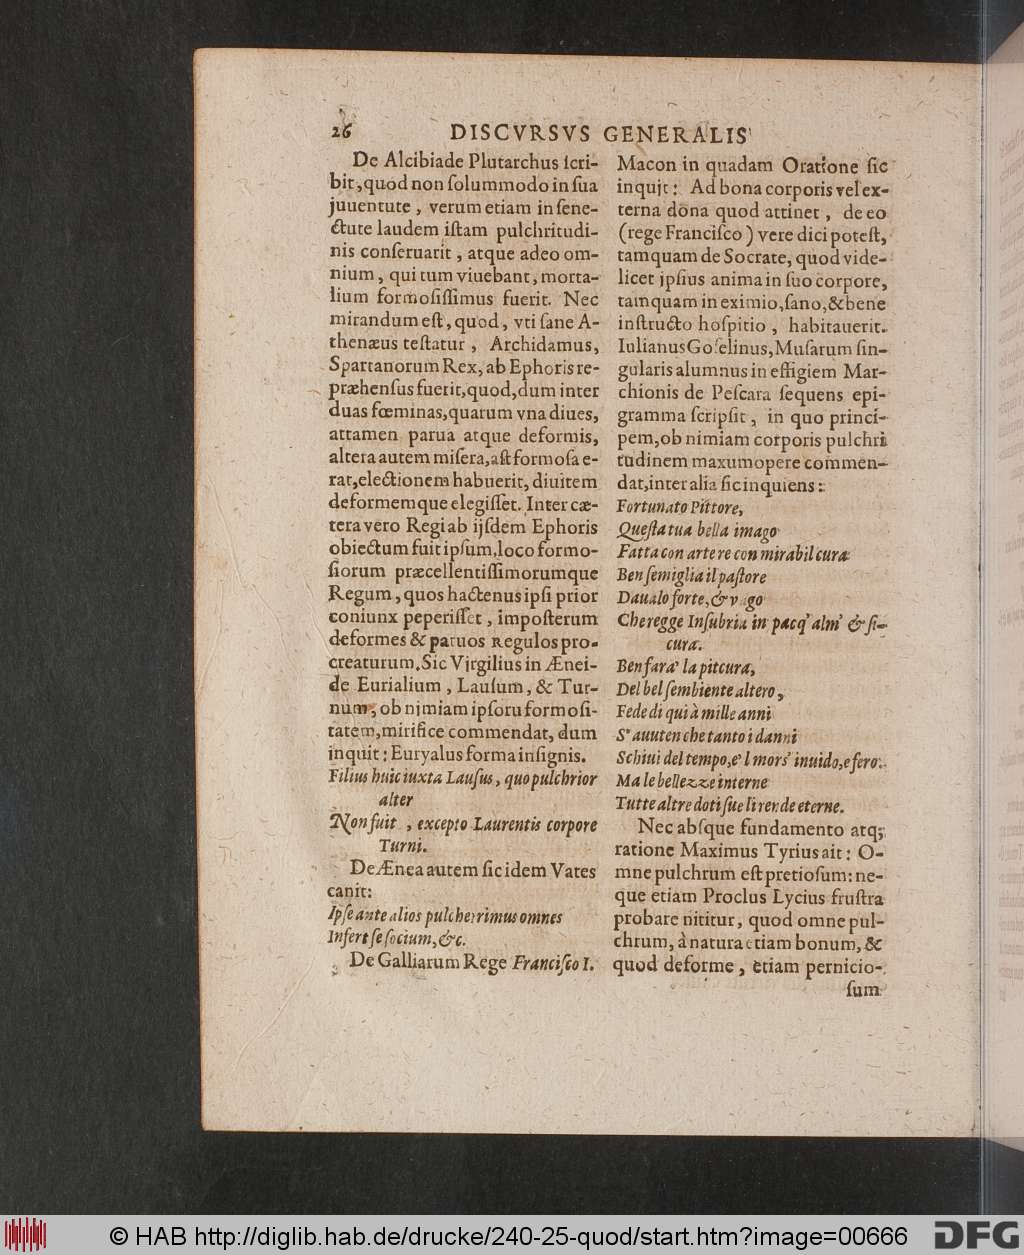 26 DISCVRSVS GENERALIS
De Alcibiade Plutarchus ſcri-
bit, quod non ſolummodo in ſua
juuentute, verum etiam in ſene-
ctute laudem iſtam pulchritudi-
nis conſeruarit, atque adeo om-
nium, qui tum viuebant, morta-
lium formoſiſſimus fuerit. Nec
mirandum eſt, quod, vti ſane A-
thenæus teſtatur, Archidamus,
Spartanorum Rex, ab Ephoris re-
præhenſus fuerit, quod, dum inter
duas fœminas, quarum vna diues,
attamen parua atque deformis,
altera autem miſera, aſt formoſa e-
rat, electionem habuerit, diuitem
deformemque elegiſſet. Inter cæ-
tera vero Regi ab ijſdem Ephoris
obiectum fuit ipſum, loco formo-
ſiorum præcellentiſſimorumque
Regum, quos hactenus ipſi prior
coniunx peperiſſet, impoſterum
deformes & paruos Regulos pro-
creaturum. Sic Virgilius in Ænei-
de Eurialium, Lauſum, & Tur-
num, ob nimiam ipſoru formoſi-
tatem, mirifice commendat, dum
inquit: Euryalus forma inſignis.
Filius huic iuxta Lauſus, quo pulchrior
alter
Non fuit, excepto Laurentis corpore
Turni.
De Ænea autem ſic idem Vates
canit:
Ipſe ante alios pulcherrimus omnes
Infert ſe ſocium, &c.
De Galliarum Rege Franciſco I.
Macon in quadam Oratione ſic
inqujt: Ad bona corporis vel ex-
terna dona quod attinet, de eo
(rege Franciſco) vere dici poteſt,
tamquam de Socrate, quod vide-
licet jpſius anima in ſuo corpore,
tamquam in eximio, ſano, & bene
inſtructo hoſpitio, habitauerit.
Iulianus Goſelinus, Muſarum ſin-
gularis alumnus in effigiem Mar-
chionis de Peſcara ſequens epi-
gramma ſcripſit, in quo princi-
pem, ob nimiam corporis pulchri
tudinem maxumopere commen-
dat, inter alia ſic inquiens:
Fortunato Pittore,
Queſta tua bella imago
Fatta con arte re con mirabil cura
Ben ſemiglia il paſtore
Daualo forte, & vago
Che regge Inſubria in pacq' alm' & ſi-
cura.
Ben fara' la pitcura,
Del bel ſembiente altero,
Fede di qui à mille anni
S' auuten che tanto i danni
Schiui del tempo, e' l mors' inuido, e fero.
Ma le bellezze interne
Tutte altre doti ſue li rende eterne.
Nec abſque fundamento atq;
ratione Maximus Tyrius ait: O-
mne pulchrum eſt pretioſum: ne-
que etiam Proclus Lycius fruſtra
probare nititur, quod omne pul-
chrum, à natura etiam bonum, &
quod deforme, etiam pernicio-
ſum
© HAB http://diglib.hab.de/drucke/240-25-quod/start.htm?image=00666
DFG